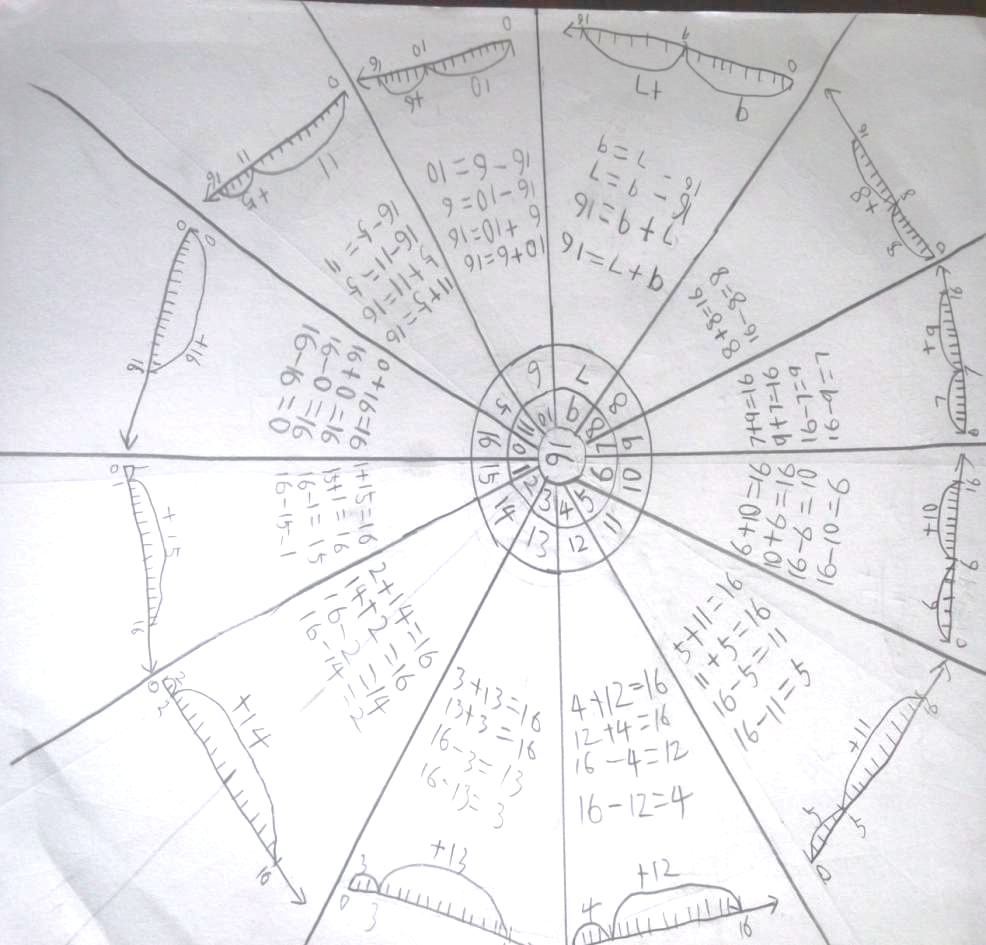 16
0
1
2
3
4
5
6
7
8
9
10
11
16
15
14
13
12
11
10
9
8
7
6
5
0+16=16
16+0=16
16-0=16
16-16=0
0
0
+16
16
1+15=16
15+1=16
16-1=15
16-15-1
0
1
+15
16
2+14=16
14+2=16
16-2=14
16-14=2
0
2
2
+14
16
3+13=16
13+3=16
16-3=13
16-13=3
3
+13
0
3
4+12=16
12+4=16
16-4=12
16-12=4
4
+12
16
5+11=16
11+5=16
16-5=11
16-11=5
5
+11
0
5
16
6+10=16
10+6=16
16-6=10
16-10=6
6
+10
0
6
16
7+9=16
9+7=16
16-7=9
16-9=7
7
+9
0
7
16
8+8=16
16-8=8
8
+8
0
8
16
9+7=16
7+9=16
16-9=7
16-7=9
9
+7
0
9
16
10+6=16
6+10=16
16-10=6
16-6=10
10
+6
0
10
16
11+5=16
5+11=16
16-11=5
16-5=11
11
+5
0
11
16